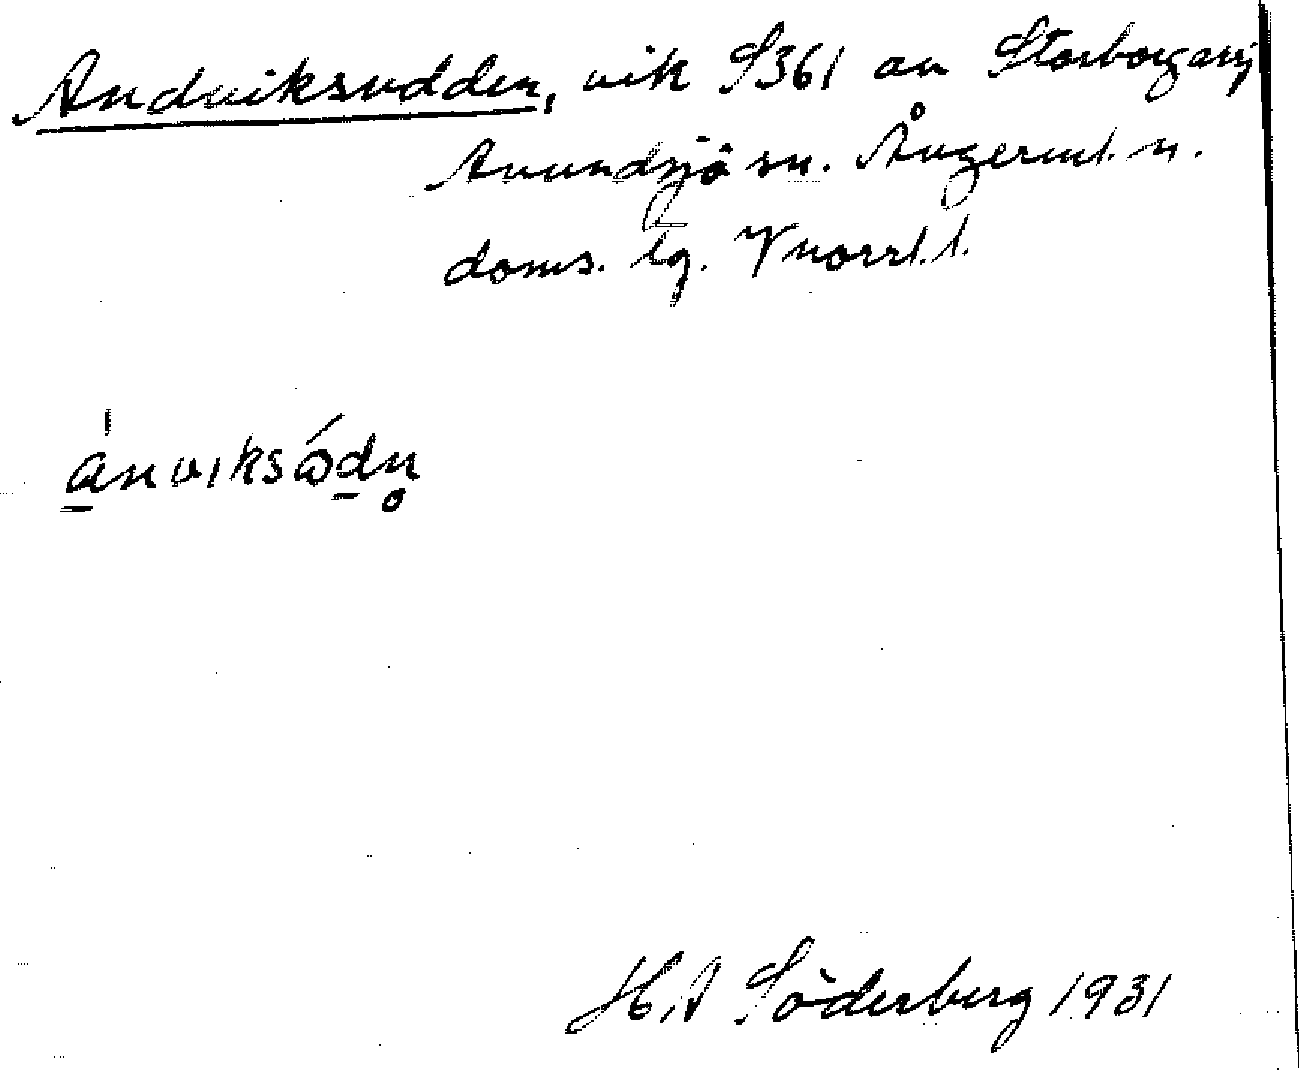 Andviksudden, vik S361 av Storborgarsj
Anundsjö sn. Ångerml. n.
doms. lg. Vnorrl. l.
ánviksǿdn̥
H.A Söderberg 1931